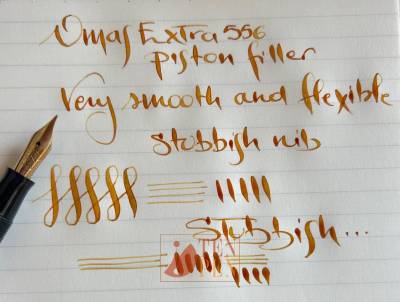 Omas Extra 556
piston filler
Very smooth and flexible
stubbish nib
Stubbish...